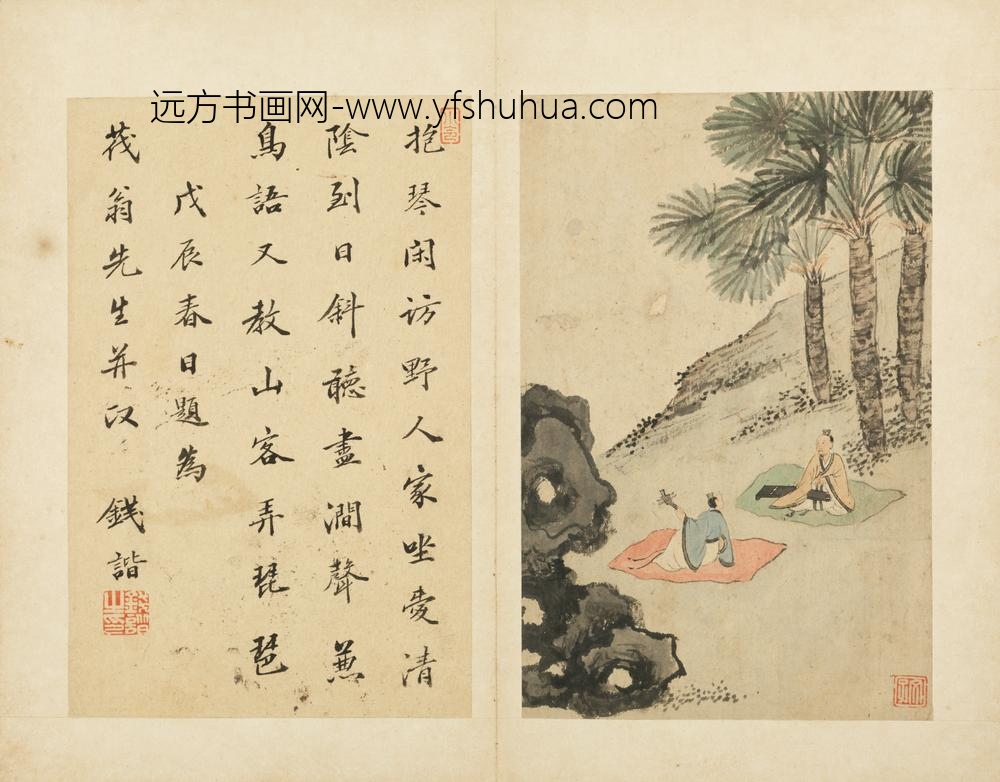 远方书画网-www.yfshuhua.com
抱琴闲访野人家坐爱清
陰到日斜聽盡澗聲兼
鳥語又教山客弄琵琶
戊辰春日題為
茷翁先生并汉
錢諧